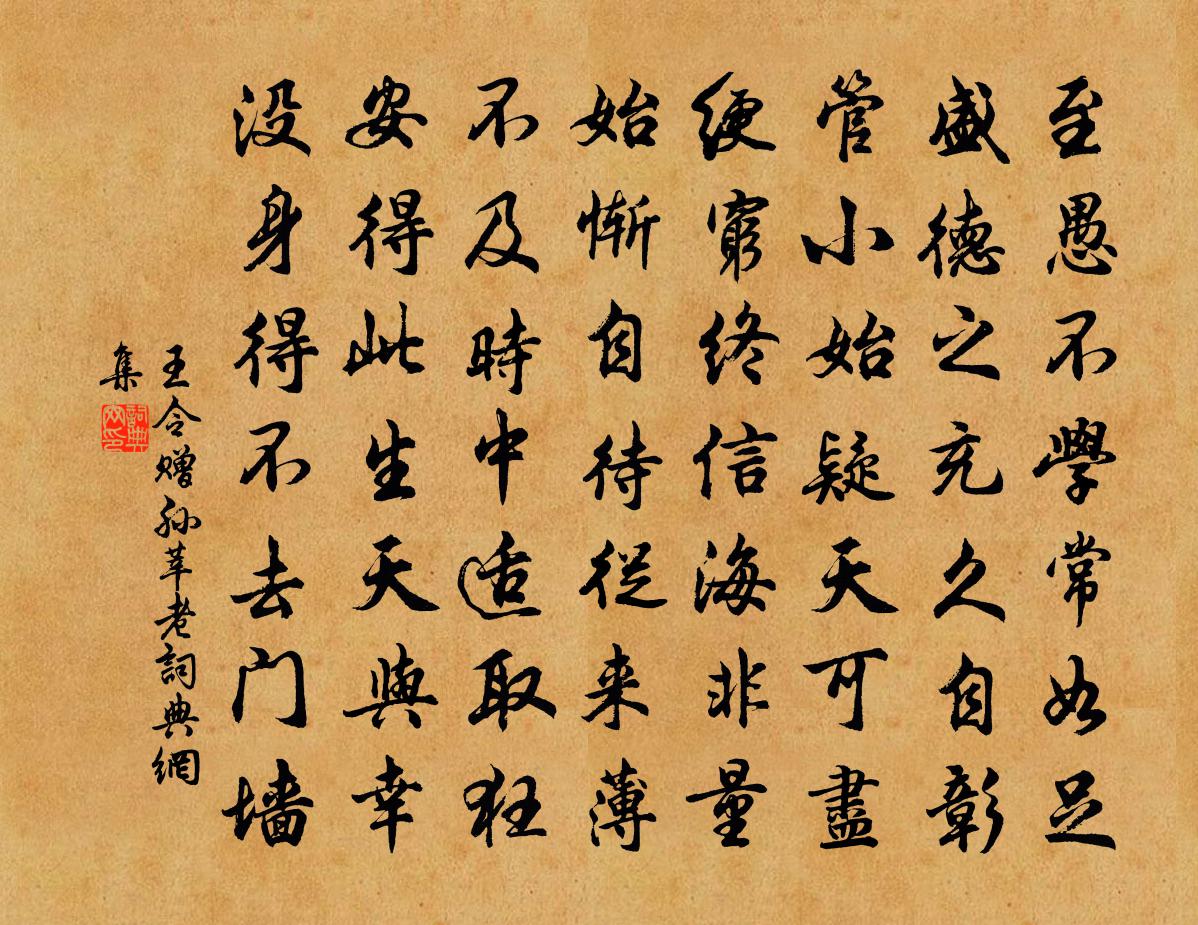 至愚不學常如足
盛德之充久自彰
管小始疑天可盡
綆窮終信海非量
始慚自待從来薄
不及時中适取狂
安得此生天與幸
没身得不去门墙
王令赠孙莘老詞典網
集
詞典網印